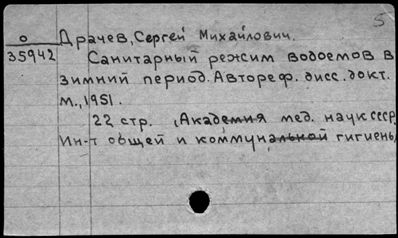 5
Драчев, Сергей Михайлович.
о
35942
Санитарный режим водоемов в
зимний период. Автореф. дисс. докт.
м., 1951.
22 стр. (Академия мед. наук ссср.
Ин-т общей и коммунальной гигиены)